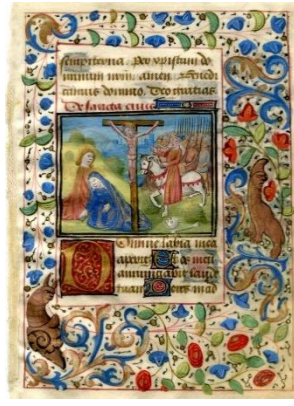 sempiterna. Per xpistum do
minum amen. Benedi
camus domino. Deo gratias
De sancta cruce
Domine labia mea
aperies Et os meu
annunciabit laude
tuam Deus in ad